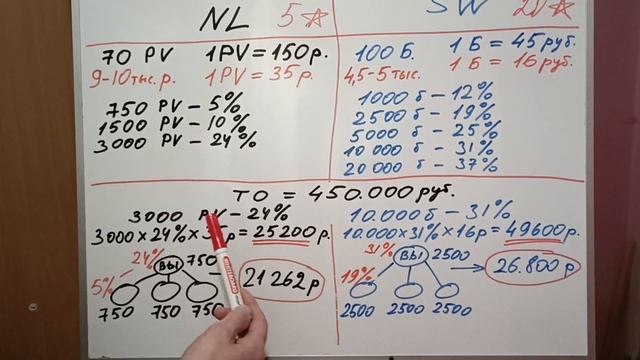 NL 5☆
70 PV 1PV=150р.
9-10тыс.р. 1PV=35р.
750 PV – 5%
1500 PV – 10%
3000 PV – 24%
SW 20☆
100 Б. 1 Б = 45 руб.
4,5-5тыс. 1 Б = 16 руб.
1000 б – 12%
2500 б – 19%
5000 б – 25%
10 000 б – 31%
20 000 б – 37%
ТО = 450.000 руб.
3000 PV – 24%
3000×24%×35р=25200р.
24% ВЫ 750
5%
750 750 750
21 262 р
10.000 б – 31%
10.000×31%×16р=49600р.
31% ВЫ 2500
19%
2500 2500 2500
26.800 р